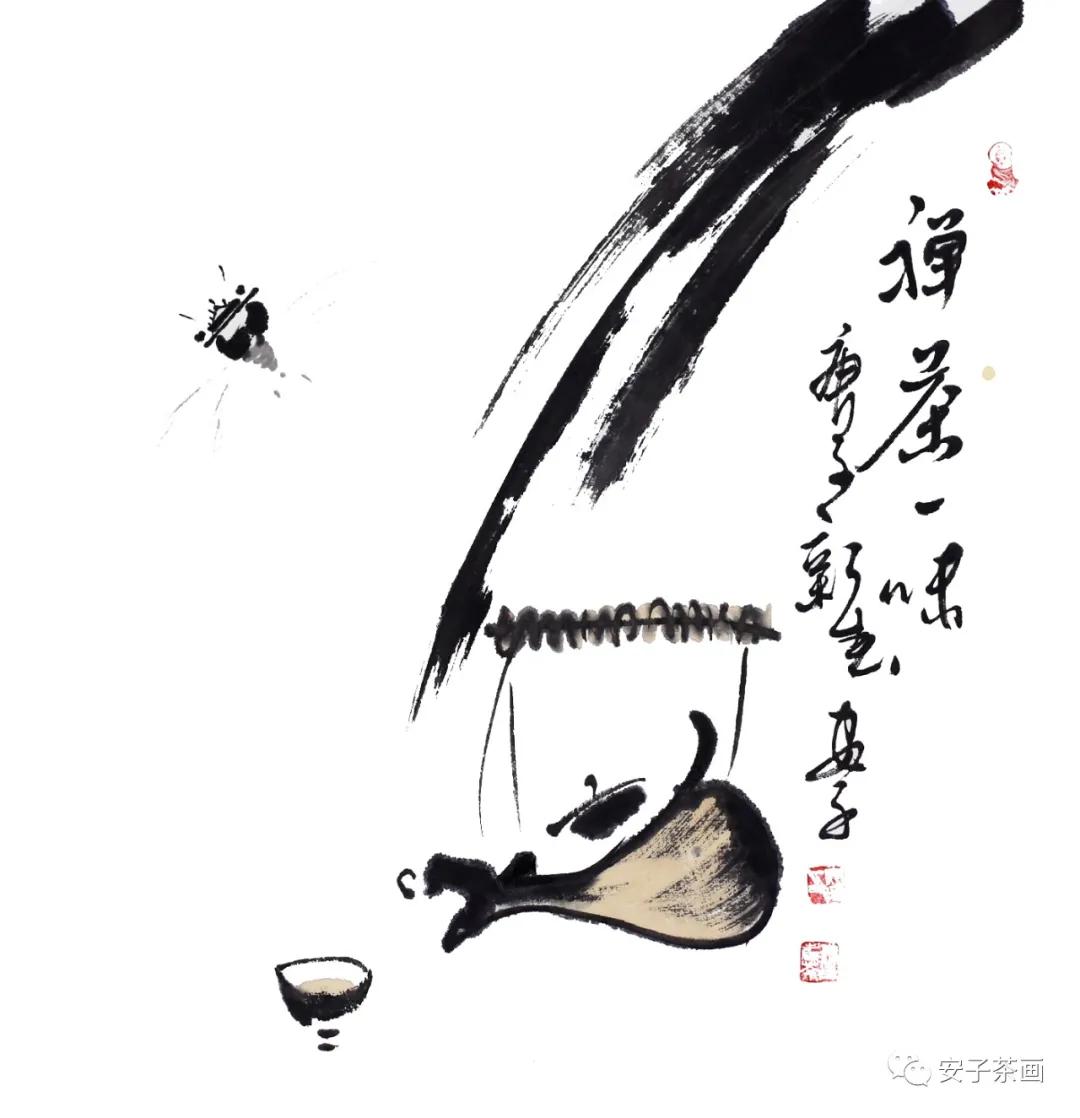 禅茶一味
庚子新春
安子
安子茶画